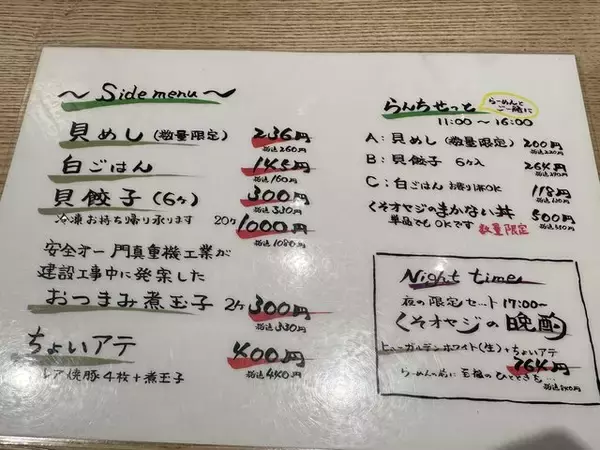 ～ Side menu ～
貝めし (数量限定) 236円
税込260円
白ごはん 145円
税込160円
貝餃子 (6ヶ) 300円
税込330円
冷凍お持ち帰り承ります 20ヶ 1000円
税込1080円
安全オー 門真重機工業が
建設工事中に発案した
おつまみ煮玉子 2ヶ 300円
税込330円
ちょいアテ 400円
レア焼豚4枚+煮玉子 税込440円
らんちせっと らーめんと
ご一緒に
11:00 ～ 16:00
A: 貝めし (数量限定) 200円
税込220円
B: 貝餃子 6ヶ入 264円
税込290円
C: 白ごはん お替りOK 118円
税込130円
くそオヤジのまかない丼 500円
単品でもOKです 数量限定 税込550円
Night time
夜の限定セット 17:00～
くそオヤジの晩酌
ヒューガルデンホワイト(生)+ちょいアテ
864円
らーめんの前に 至福のひとときを…